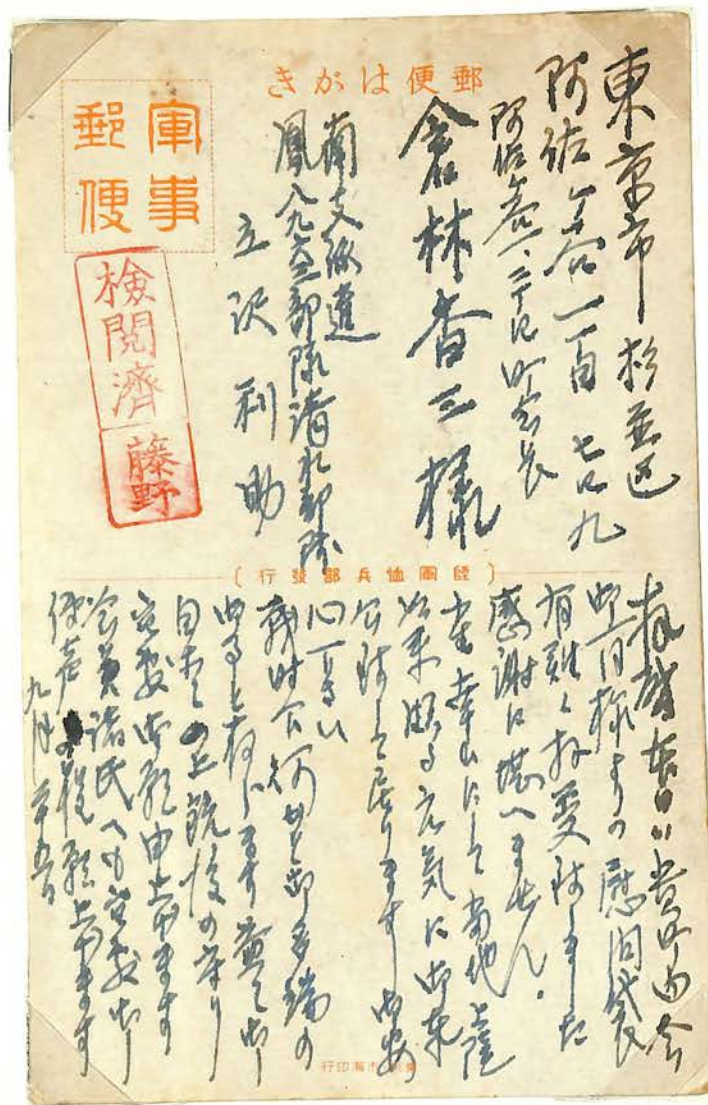 郵便はがき
軍事
郵便
検閲濟
藤野
東京市杉並区
阿佐ヶ谷一百七四九
阿佐ヶ谷一、二丁目町会長
倉林香三様
南支派遣
鳳八九 部隊清水部隊
立沢利助
(陸軍恤兵部發行)
拝啓 本日
一同様よりの慰問袋
有難く拝受致しました
感謝に堪へません。
幸にして当地上陸
以来頗る元気に御奉
公致して居ります 御安
心下さい
戦時下何かと御多端の
御事と存じます
自愛の上銃後の守り
御願申上げます
会員諸氏へも宜敷
伝声の程願上げます
九月二十五日